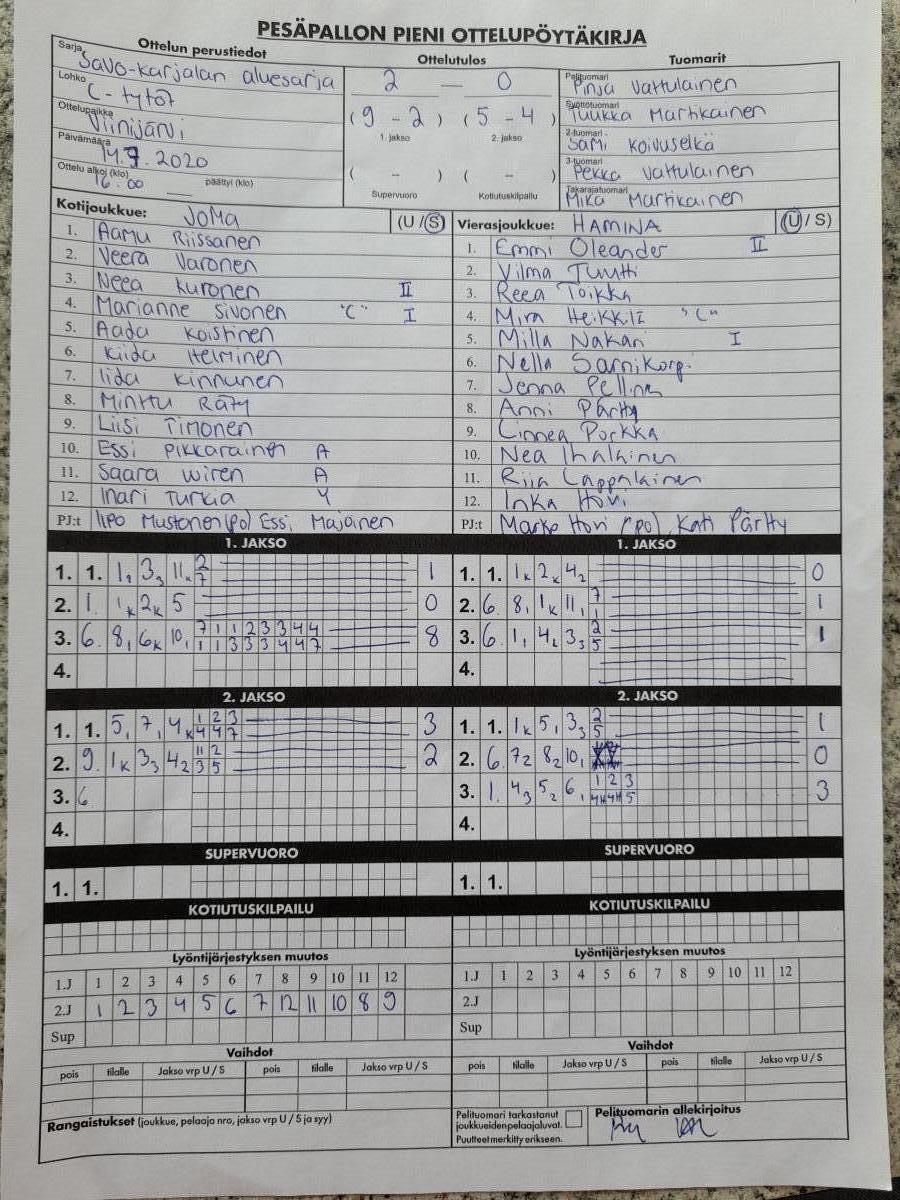 PESÄPALLON PIENI OTTELUPÖYTÄKIRJA
Ottelun perustiedot
Sarja Savo-karjalan aluesarja
Lohko C-tytöt
Ottelupaikka Viinijärvi
Päivämäärä 14.7.2020
Ottelu alkoi (klo) 16.00 päättyi (klo)
Ottelutulos
2 — 0
(9 - 2) (5 - 4)
1. jakso 2. jakso
( - ) ( - )
Supervuoro Kotiutuskilpailu
Tuomarit
Pelituomari Pinja Vattulainen
Syöttötuomari Tuukka Martikainen
2-tuomari Sami Koivuselkä
3-tuomari Pekka Vattulainen
Takarajatuomari Mika Martikainen
Kotijoukkue: JoMa (U / S)
1. Aamu Riissanen
2. Veera Varonen
3. Neea Kuronen II
4. Marianne Sivonen "C" I
5. Aada Koistinen
6. Kiida Helminen
7. Iida Kinnunen
8. Minttu Räty
9. Liisi Timonen
10. Essi Pikkarainen A
11. Saara Wiren A
12. Inari Turkia Y
PJ:t Ilpo Mustonen (po) Essi Majoinen
Vierasjoukkue: HAMINA (U / S)
1. Emmi Oleander II
2. Vilma Tuutti
3. Reea Toikka
4. Mira Heikkilä "C"
5. Milla Nakari I
6. Nella Sarnikorpi
7. Jenna Pellinen
8. Anni Pärtty
9. Linnea Porkka
10. Nea Ihalainen
11. Riia Lappalainen
12. Inka Hovi
PJ:t Marko Hovi (po), Kati Pärtty
1. JAKSO
1. 1. 1₂ 3₃ 11ₖ 2/7 1
2. 1. 1ₖ 2ₖ 5 0
3. 6. 8₁ 6ₖ 10₁ 7/1 1/1 1/3 2/3 3/3 3/4 4/4 4/7 8
4.
1. JAKSO
1. 1. 1ₖ 2ₖ 4₂ 0
2. 6. 8₁ 1ₖ 11₁ 7/1 1
3. 6. 1₁ 4₂ 3₃ 2/5 1
4.
2. JAKSO
1. 1. 5₁ 7₁ 4ₖ 1/4 2/4 3/7 3
2. 9. 1ₖ 3₃ 4₂ 11/3 2/5 2
3. 6
4.
2. JAKSO
1. 1. 1ₖ 5₁ 3₃ 2/5 1
2. 6. 7₂ 8₂ 10₁ 0
3. 1. 4₃ 5₂ 6₁ 1/4H 2/4H 3/5 3
4.
SUPERVUORO
1. 1.
SUPERVUORO
1. 1.
KOTIUTUSKILPAILU
KOTIUTUSKILPAILU
Lyöntijärjestyksen muutos
1.J 1 2 3 4 5 6 7 8 9 10 11 12
2.J 1 2 3 4 5 6 7 12 11 10 8 9
Sup
Lyöntijärjestyksen muutos
1.J 1 2 3 4 5 6 7 8 9 10 11 12
2.J
Sup
Vaihdot
pois tilalle Jakso vrp U / S pois tilalle Jakso vrp U / S
Vaihdot
pois tilalle Jakso vrp U / S pois tilalle Jakso vrp U / S
Rangaistukset (joukkue, pelaaja nro, jakso vrp U / S ja syy)
Pelituomari tarkastanut
joukkueiden pelaajaluvat.
Puutteet merkitty erikseen.
Pelituomarin allekirjoitus